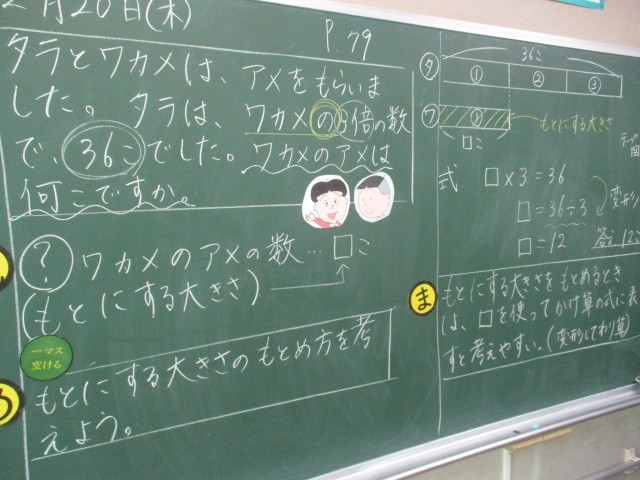 2月20日(木)
P.79
タラとワカメは、アメをもらいま
した。タラは、ワカメの3倍の数
で、36こでした。ワカメのアメは
何こですか。
? ワカメのアメの数…□こ
(もとにする大きさ)
一マス
空ける
もとにする大きさのもとめ方を考
えよう。
36こ
タ ① ② ③
ワ ① もとにする大きさ
□こ
式 □×3=36
□=36÷3 変形
□=12 答え 12こ
ま
もとにする大きさをもとめるとき
は、□を使ってかけ算の式に表
すと考えやすい。(変形してわり算)